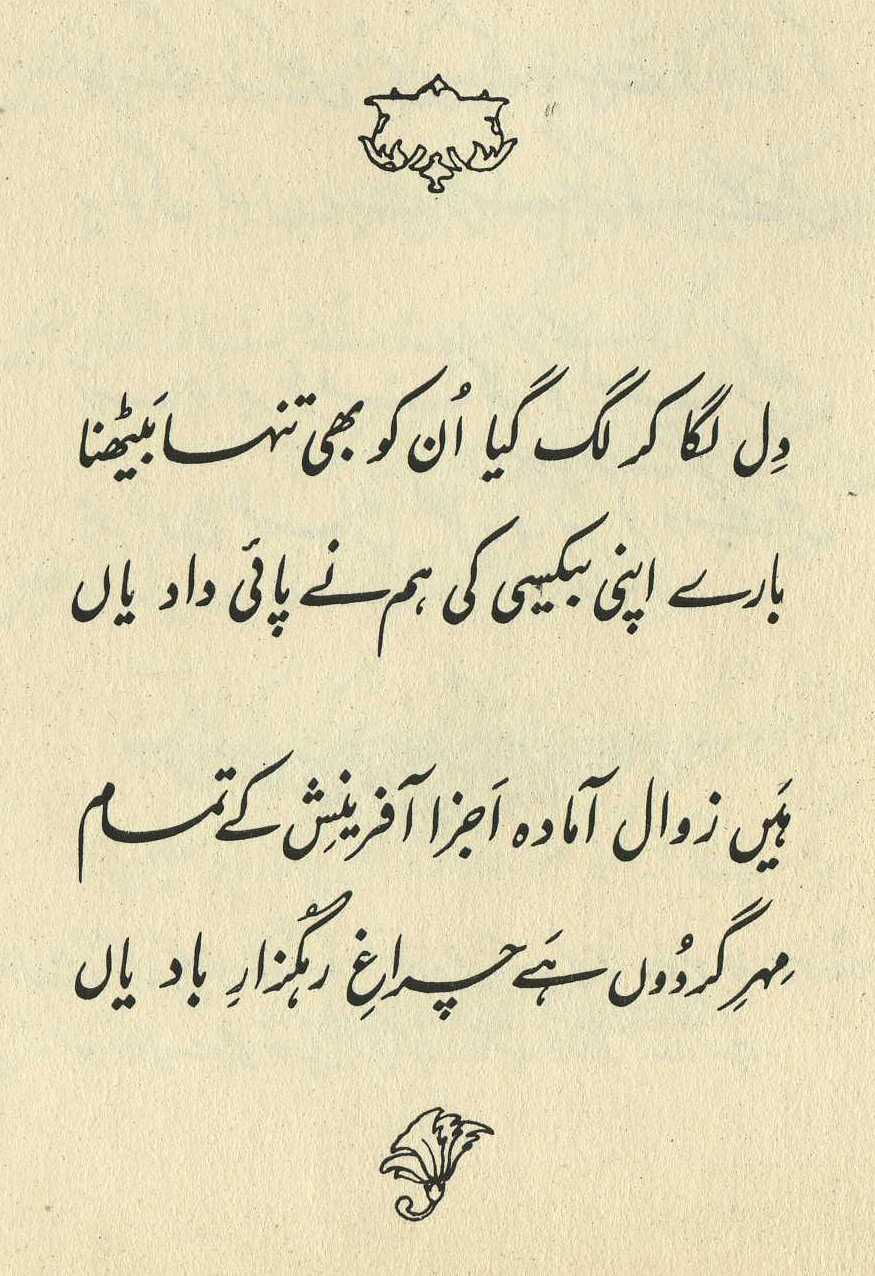 دِل لگا کر لگ گیا اُن کو بھی تنہا بَیٹھنا
بارے اپنی بیکسی کی ہم نے پائی داد یاں
ہَیں زوال آمادہ اَجزا آفرینِش کے تمام
مِہرِ گردُوں ہَے چراغِ رہگُزارِ باد یاں